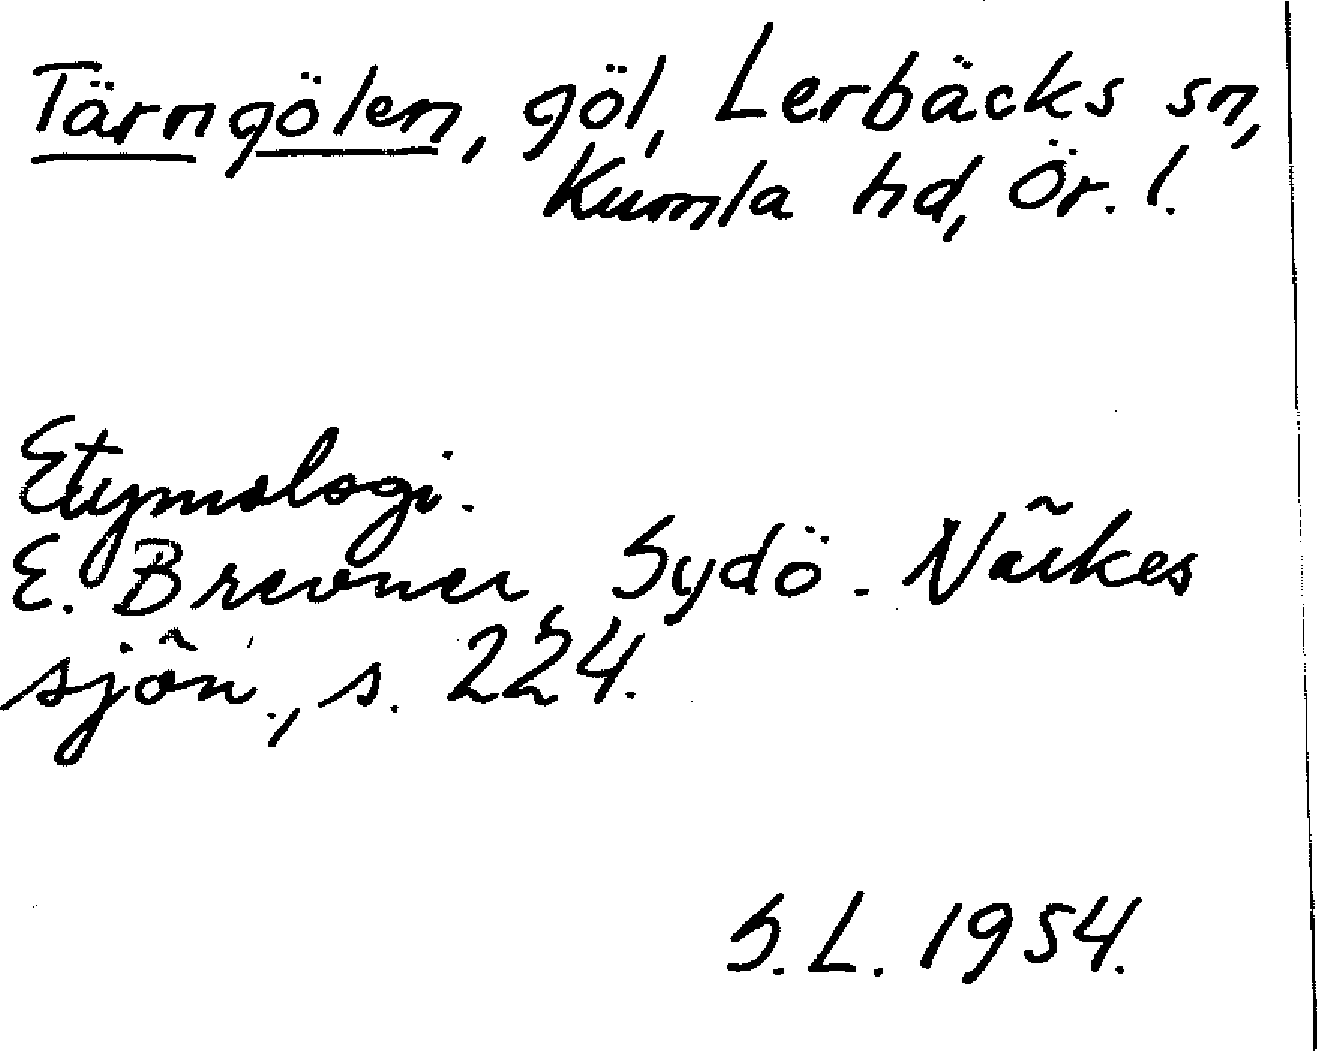 Tärngölen, göl, Lerbäcks sn,
Kumla hd, Ör. l.
Etymologi.
E. Brevner, Sydö. Närkes
sjön., s. 224.
S. L. 1954.